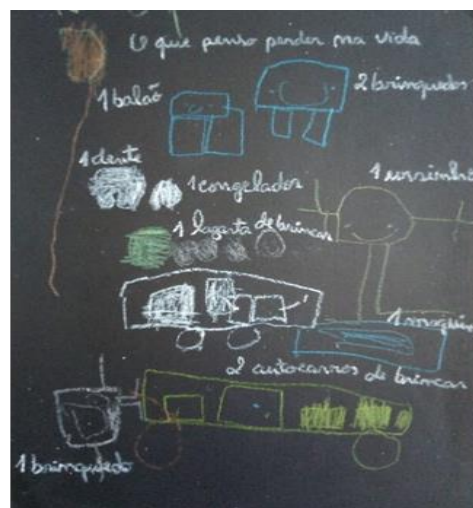 O que penso perder na vida
1 balão
2 brinquedos
1 dente
1 congelador
1 ursinho
1 lagarta de brincar
2 autocarros de brincar
1 brinquedo